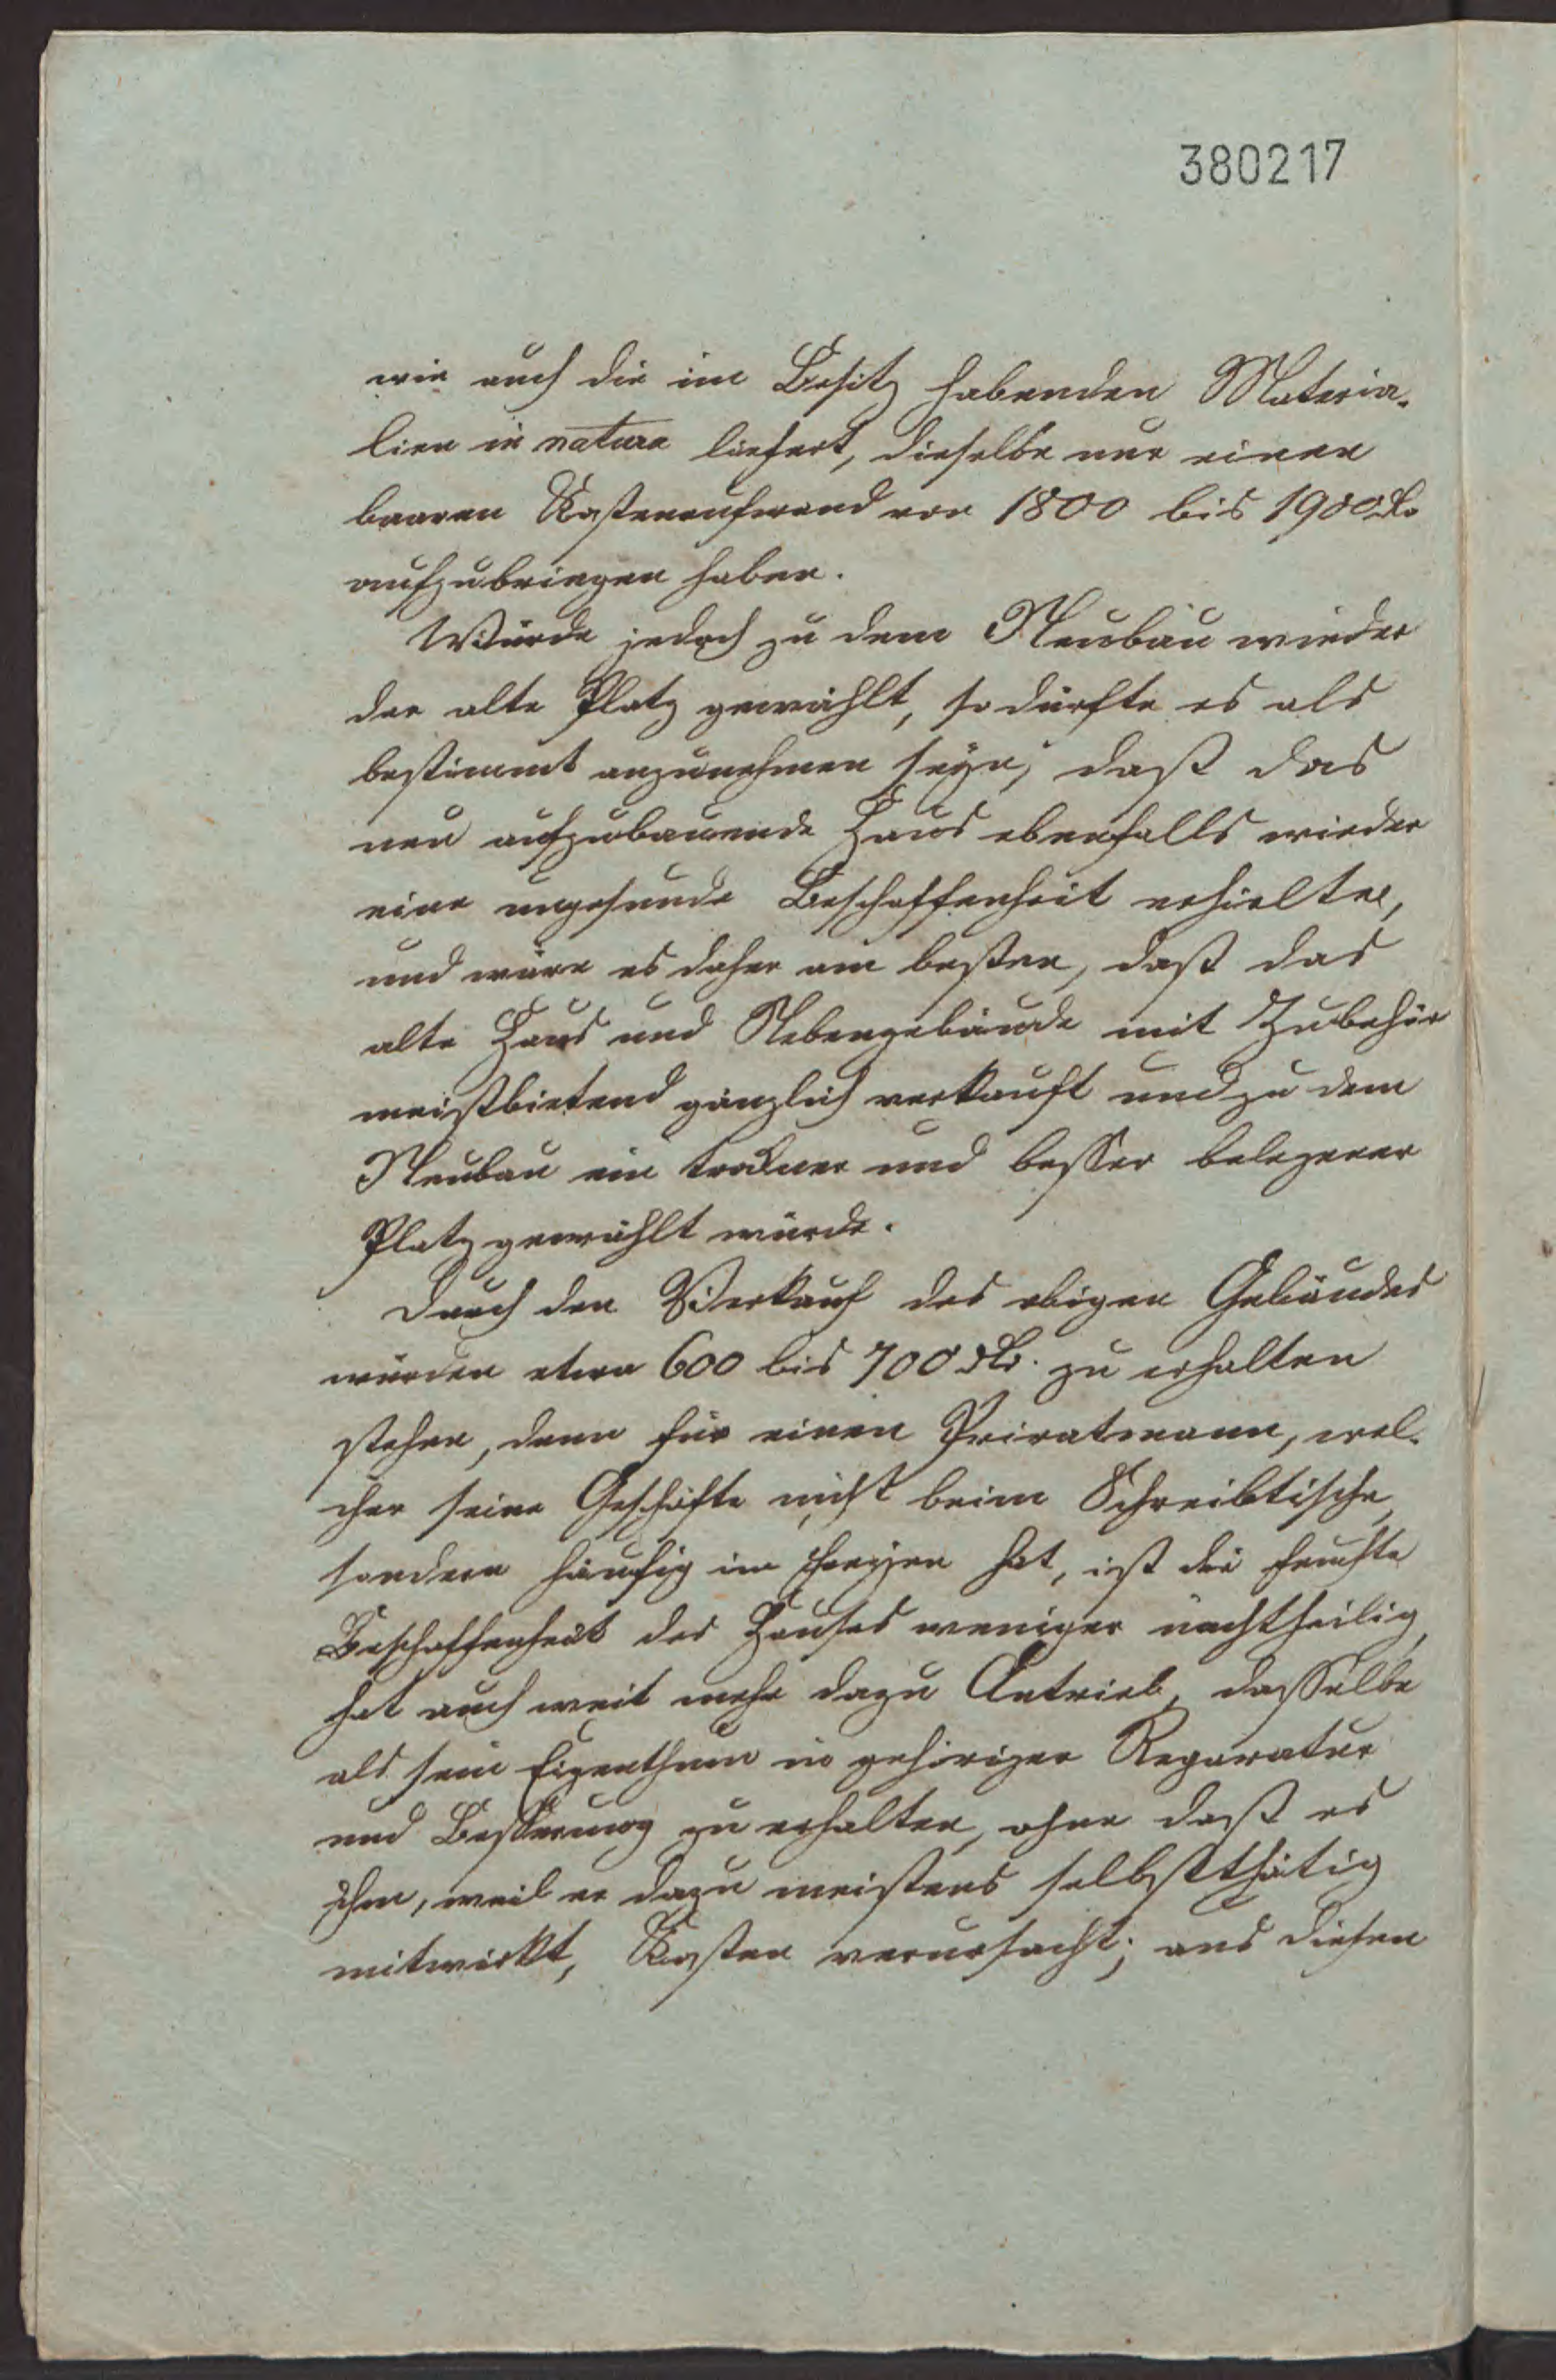 380217
wie auch die im Besitz habenden Materia-
lien in natura liefert, dieselbe nur einen
baaren Kostenaufwand von 1800 bis 1900 Rtlr
aufzubringen haben.
Würde jedoch zu dem Neubau wieder
der alte Platz gewählt, so dürfte es als
bestimmt anzunehmen seyn, daß das
neu aufzubauende Haus ebenfalls wieder
eine ungesunde Beschaffenheit erhielte,
und wäre es daher am besten, daß das
alte Haus und Nebengebäude mit Zubehör
meistbietend gänzlich verkauft und zu dem
Neubau ein trockner und besser belegener
Platz gewählt würde.
Durch den Verkauf des obigen Gebäudes
würden etwa 600 bis 700 Rtlr. zu erhalten
stehen, denn für einen Privatmann, wel-
cher seine Geschäfte nicht beim Schreibtische,
sondern häufig im Freyen hat, ist die feuchte
Beschaffenheit des Hauses weniger nachtheilig,
hat auch weit mehr dazu Antrieb, dasselbe
als sein Eigenthum in gehöriger Reparatur
und Besserung zu erhalten, ohne daß es
ihm, weil er dazu meistens selbstthätig
mitwirkt, Kosten verursacht; aus diesen